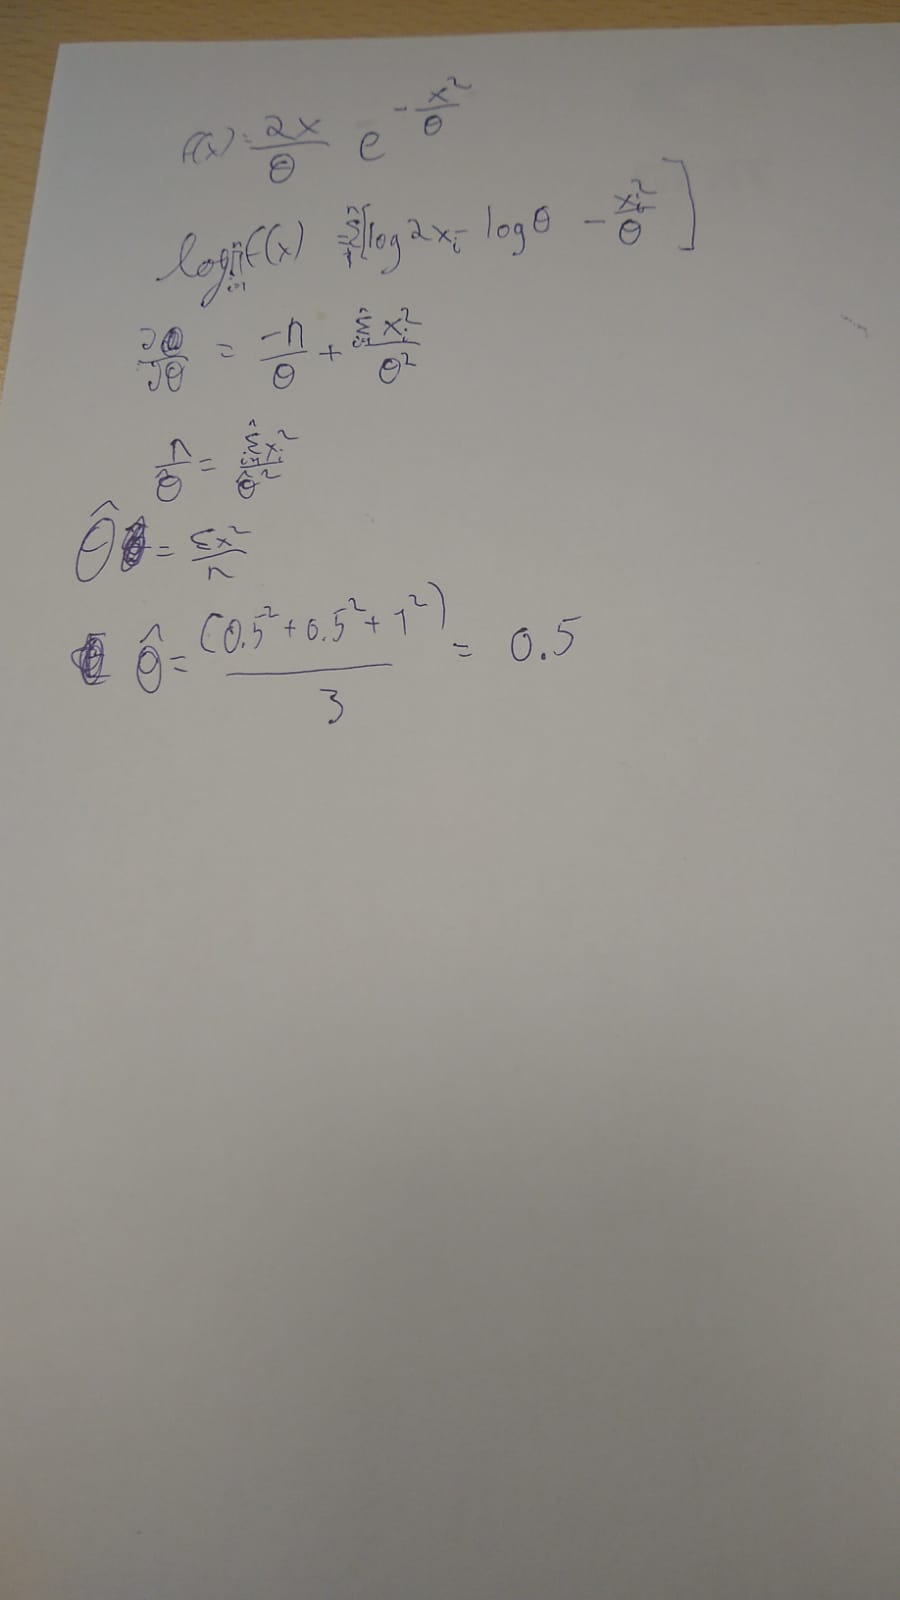 f(x) = 2x/θ e^(-x²/θ)
log ∏_{i=1}^n f(x) = Σ_1^n [log 2x_i - log θ - x_i²/θ]
= -n/θ + Σ_{i=1}^n x_i²/θ²
n/θ̂ = Σ_{i=1}^n x_i²/θ̂²
θ̂ = Σx²/n
θ̂ = (0.5² + 0.5² + 1²)/3 = 0.5